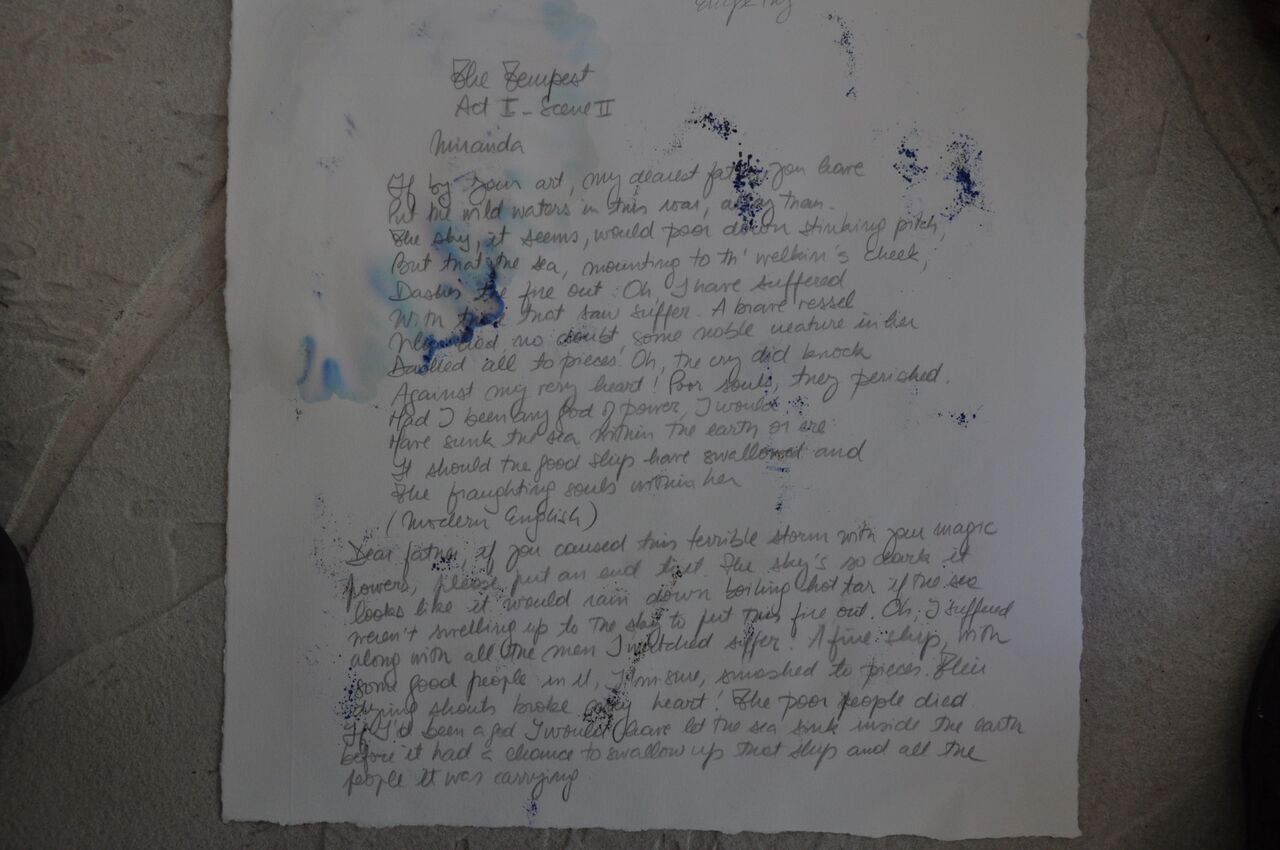 The Tempest
Act I - Scene II
Miranda
If by your art, my dearest father, you have
Put the wild waters in this roar, allay them.
The sky, it seems, would poor down stinking pitch,
But that the sea, mounting to th' welkin's cheek,
Dashes the fire out. Oh, I have suffered
With those that saw suffer. A brave vessel
Who had no doubt some noble creature in her
Dashed all to pieces! Oh, the cry did knock
Against my very heart! Poor souls, they perished.
Had I been any god of power, I would
Have sunk the sea within the earth or ere
It should the good ship have swallowed and
The fraughting souls within her
(Modern English)
Dear father, if you caused this terrible storm with your magic
powers, please put an end to it. The sky's so dark it
looks like it would rain down boiling hot tar if the sea
weren't swelling up to the sky to put this fire out. Oh, I suffered
along with all the men I watched suffer. A fine ship, with
some good people in it, I'm sure, smashed to pieces. Their
dying shouts broke my heart! The poor people died
If I'd been a god I would have let the sea sink inside the earth
before it had a chance to swallow up that ship and all the
people it was carrying